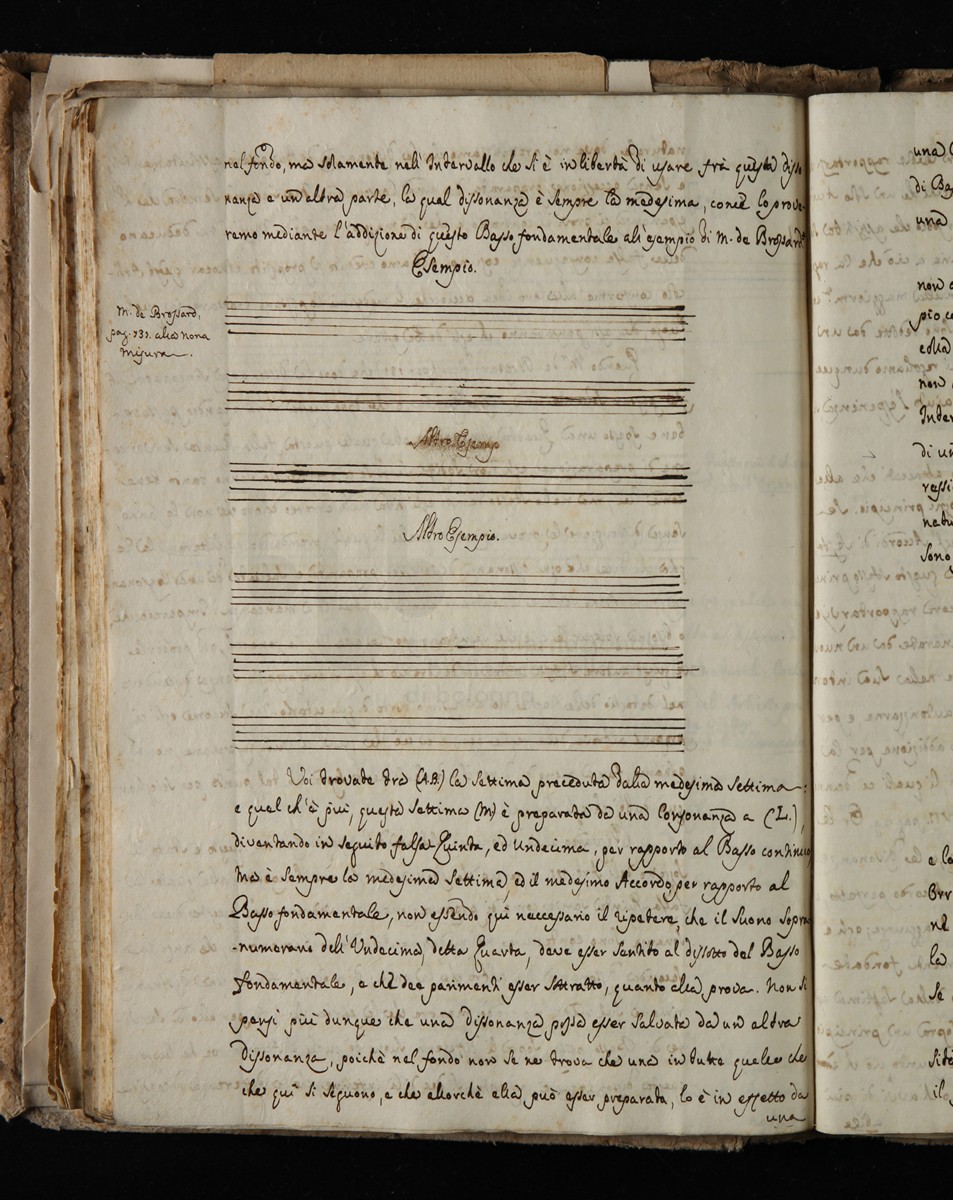 nel fondo, ma solamente nell' Intervallo che si è in libertà di usare frà questa disso
nanza e un'altra parte, la qual dissonanza è sempre la medesima, come lo prove
remo mediante l'addizione di questo Basso fondamentale all'esempio di M. de Brossard.
Esempio.
M. de Brossard,
pag. 131. alla nona
Misura.
Altro Esemp
Altro Esempio.
Voi trovate trà (A.B.) la Settima preceduta dalla medesima Settima;
e quel ch'è più, questa Settima (M) è preparata da una Consonanza a (L.),
diventando in seguito falsa Quinta, ed Undecima, per rapporto al Basso continuo
Ma è sempre la medesima Settima, ed il medesimo Accordo, per rapporto al
Basso fondamentale, non essendo qui neccessario il ripetere, che il Suono Sopra
-numerario dell'Undecima, detta Quarta, deve esser sentito al dissotto del Basso
fondamentale, e che dee parimenti esser sottratto, quanto alla prova. Non si
pensi più dunque che una dissonanza possa esser salvata da un altra
dissonanza, poichè nel fondo non se ne trova che una in tutte quelle che
che qui si seguono, e che allorchè ella può esser preparata, lo è in effetto da
una
di Bas
una
non
non
di un
sono
e la
la
il